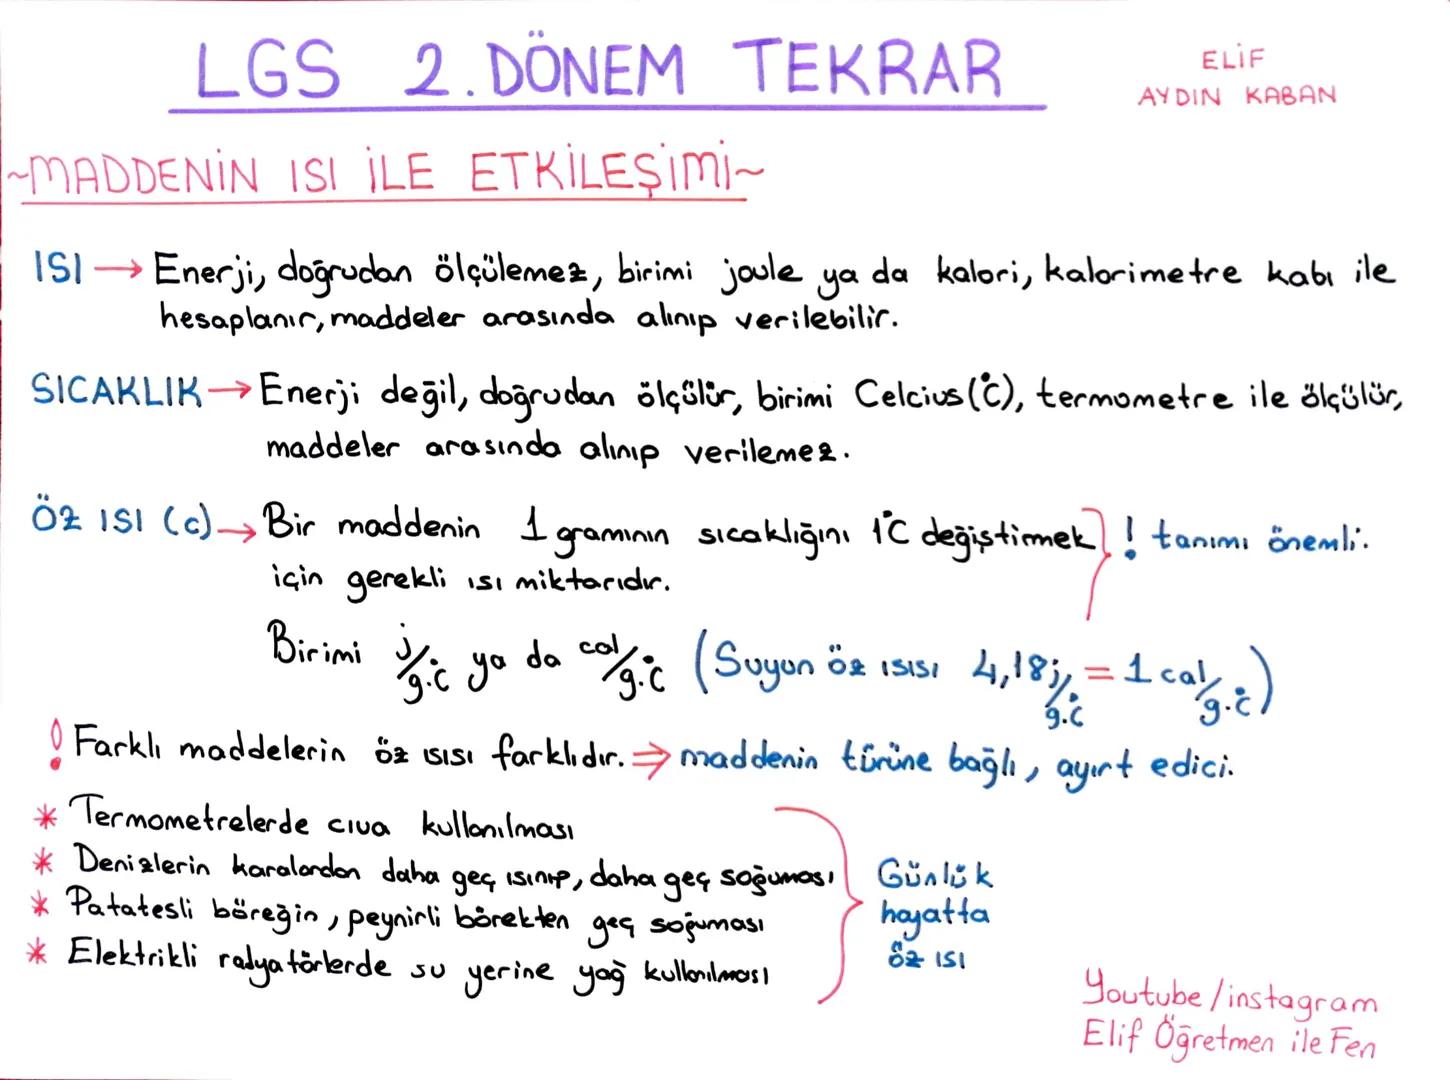 LGS 2. DÖNEM TEKRAR
ELİF
AYDIN KABAN
~MADDENİN ISI İLE ETKİLEŞİMİ~
ISI → Enerji, doğrudan ölçülemez, birimi joule ya da kalori, kalorimetre kabı ile
hesaplanır, maddeler arasında alınıp verilebilir.
SICAKLIK → Enerji değil, doğrudan ölçülür, birimi Celcius (°C), termometre ile ölçülür,
maddeler arasında alınıp verilemez.
ÖZ ISI (c) → Bir maddenin 1 gramının sıcaklığını 1°C değiştirmek } ! tanımı önemli.
için gerekli ısı miktarıdır.
Birimi j/g.°C ya da cal/g.°C (Suyun öz ısısı 4,18 j/g.°C = 1 cal/g.°C)
! Farklı maddelerin öz ısısı farklıdır. ⇒ maddenin türüne bağlı, ayırt edici.
* Termometrelerde cıva kullanılması
* Denizlerin karalardan daha geç ısınıp, daha geç soğuması
* Patatesli böreğin, peynirli börekten geç soğuması
* Elektrikli radyatörlerde su yerine yağ kullanılması
Günlük
hayatta
öz ısı
Youtube/instagram
Elif Öğretmen ile Fen